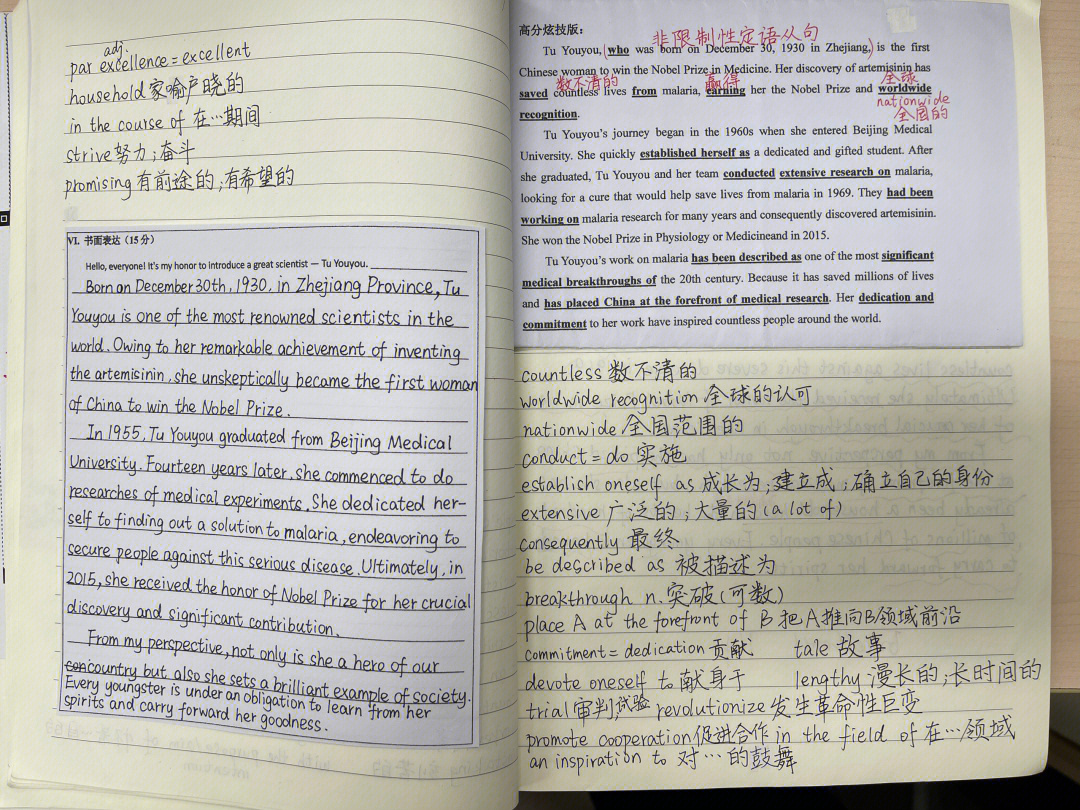 adj.
par excellence = excellent
household 家喻户晓的
in the course of 在…期间
strive 努力；奋斗
promising 有前途的；有希望的
VI. 书面表达（15 分）
Hello, everyone! It's my honor to introduce a great scientist — Tu Youyou.
Born on December 30th, 1930, in Zhejiang Province, Tu
Youyou is one of the most renowned scientists in the
world. Owing to her remarkable achievement of inventing
the artemisinin, she unskeptically became the first woman
of China to win the Nobel Prize.
In 1955, Tu Youyou graduated from Beijing Medical
University. Fourteen years later, she commenced to do
researches of medical experiments. She dedicated her-
self to finding out a solution to malaria, endeavoring to
secure people against this serious disease. Ultimately, in
2015, she received the honor of Nobel Prize for her crucial
discovery and significant contribution.
From my perspective, not only is she a hero of our
country but also she sets a brilliant example of society.
Every youngster is under an obligation to learn from her
spirits and carry forward her goodness.
高分炫技版：
非限制性定语从句
Tu Youyou, (who was born on December 30, 1930 in Zhejiang,) is the first
Chinese woman to win the Nobel Prize in Medicine. Her discovery of artemisinin has
数不清的 赢得 全球
saved countless lives from malaria, earning her the Nobel Prize and worldwide
nationwide
recognition.
全国的
Tu Youyou's journey began in the 1960s when she entered Beijing Medical
University. She quickly established herself as a dedicated and gifted student. After
she graduated, Tu Youyou and her team conducted extensive research on malaria,
looking for a cure that would help save lives from malaria in 1969. They had been
working on malaria research for many years and consequently discovered artemisinin.
She won the Nobel Prize in Physiology or Medicineand in 2015.
Tu Youyou's work on malaria has been described as one of the most significant
medical breakthroughs of the 20th century. Because it has saved millions of lives
and has placed China at the forefront of medical research. Her dedication and
commitment to her work have inspired countless people around the world.
countless 数不清的
worldwide recognition 全球的认可
nationwide 全国范围的
conduct = do 实施
establish oneself as 成长为；建立成；确立自己的身份
extensive 广泛的；大量的 (a lot of)
consequently 最终
be described as 被描述为
breakthrough n. 突破(可数)
place A at the forefront of B 把A推向B领域前沿
commitment = dedication 贡献 tale 故事
devote oneself to 献身于 lengthy 漫长的；长时间的
trial 审判；试验 revolutionize 发生革命性巨变
promote cooperation 促进合作 in the field of 在…领域
an inspiration to 对…的鼓舞